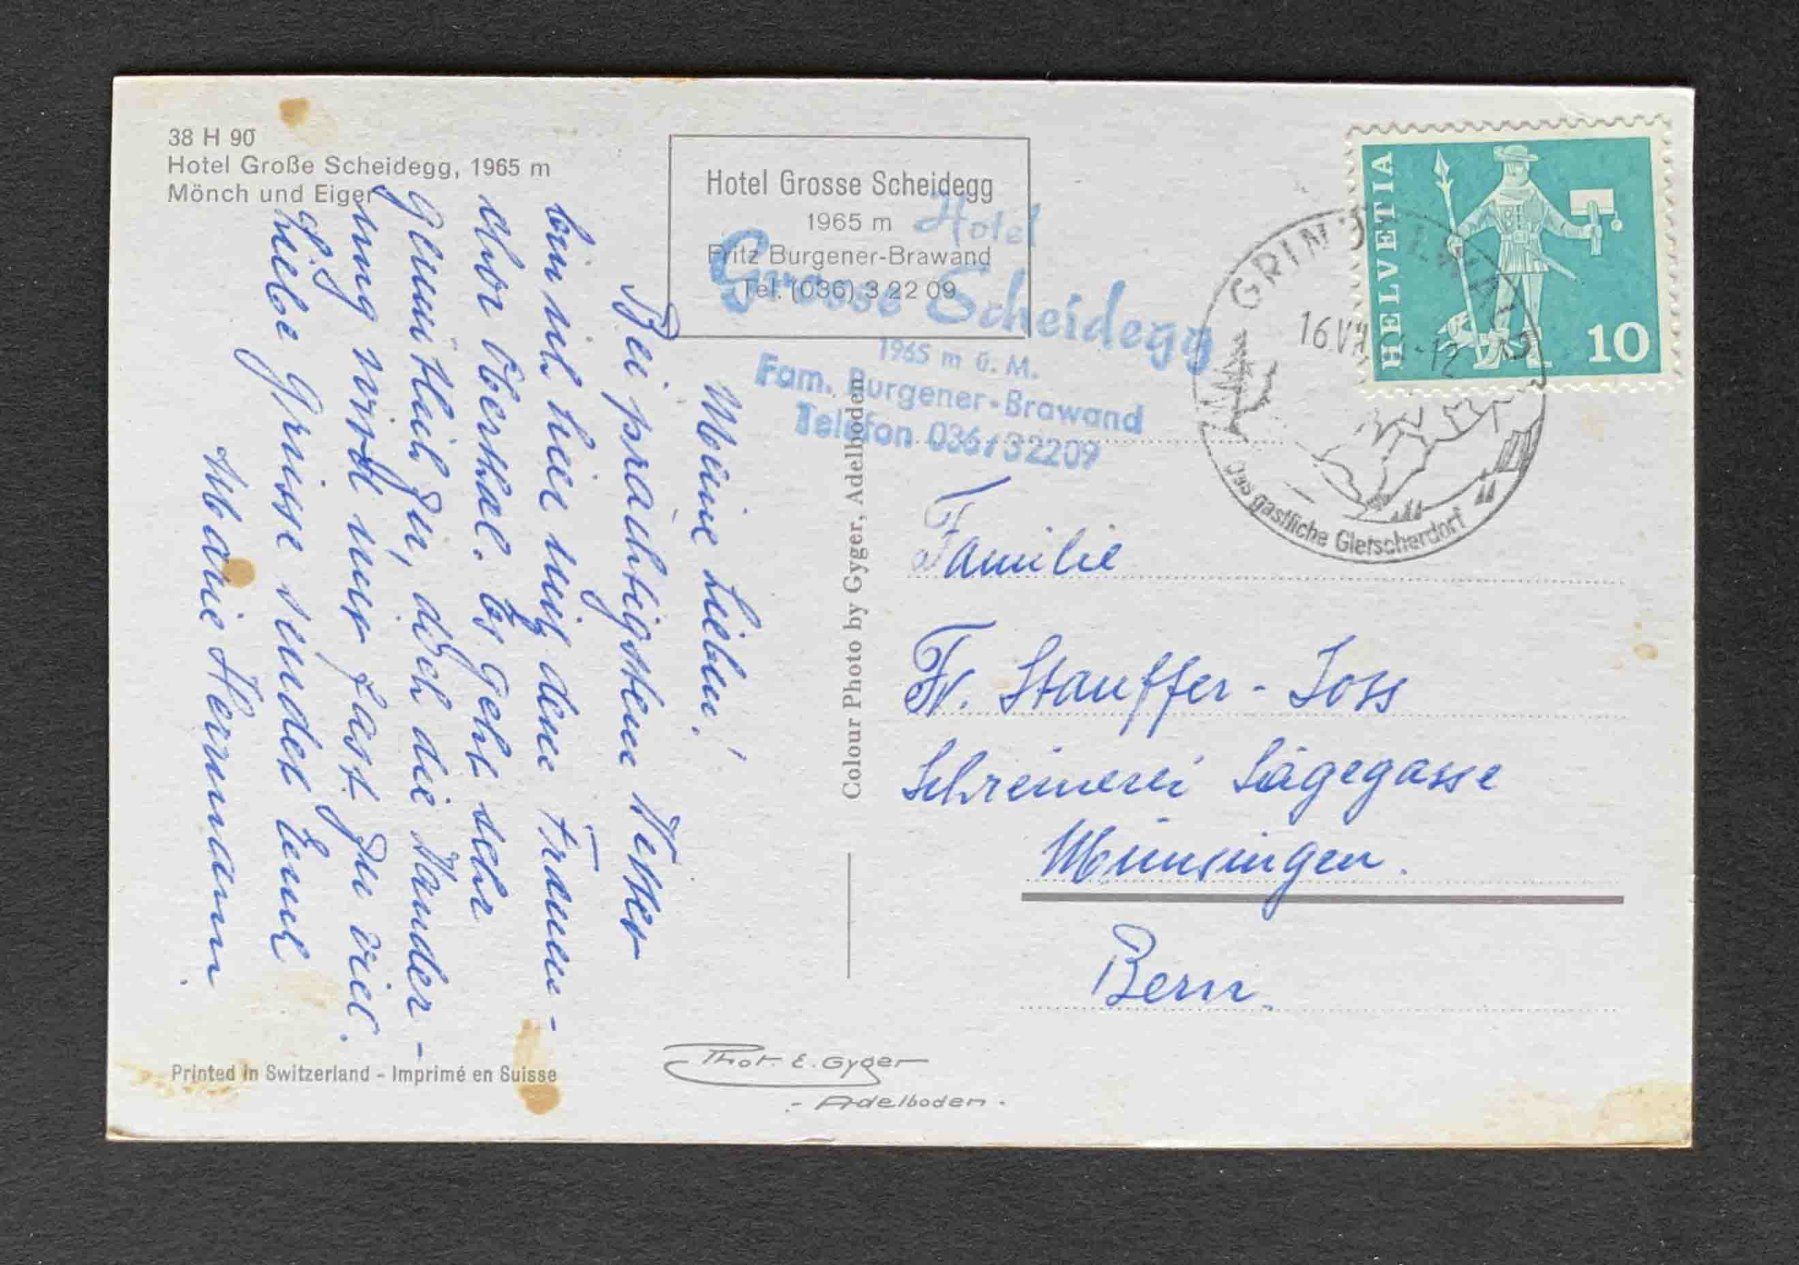 38 H 90
Hotel Große Scheidegg, 1965 m
Mönch und Eiger
Hotel Grosse Scheidegg
1965 m
Fritz Burgener-Brawand
Tel. (036) 3 22 09
Hotel
Grosse Scheidegg
1965 m ü. M.
Fam. Burgener-Brawand
Telefon 036/32209
HELVETIA
10
GRINDELWALD
16.VII
-12
das gastliche Gletscherdorf
Meine Lieben!
Bei prächtigstem Wetter
bin ich hier mit dem Frauen-
chor Oberthal. Es geht sehr
gemütlich zu, doch die Wander-
ung wird mir fast zu viel.
Liebe Grüsse sendet Euch
Marie Hermann.
Familie
Fr. Stauffer-Joss
Schreinerei Sägegasse
Münsingen.
Bern.
Colour Photo by Gyger, Adelboden
Printed in Switzerland - Imprimé en Suisse
Phot. E. Gyger
- Adelboden -